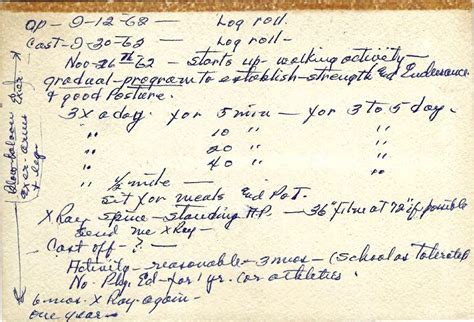 Op - 9-12-62 - Log roll.
Cast - 9-30-62 - Log roll -
Nov-26th 62 - starts up - walking activity -
gradual - program to establish - strength End Endurance
& good Posture.
3X a day. for 5 min - for 3 to 5 day.
" 10 " "
" 20 " "
" 40 " "
" 1/2 mile -
sit for meals End Pot.
X Ray Spine - standing A.P. - 36" film at 72" if possible
Send me X Ray -
Cast off - ? -
Activity - reasonable - 3 mos - (School as Tolerated
No - Phy. Ed - for 1 yr. (or athletics.
6 mos. X Ray again -
one year -
Blow balloon
Exer. arms
& leg